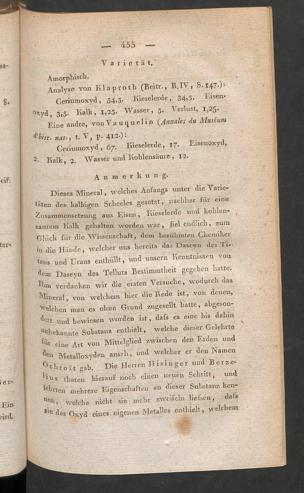 — 455 —
Varietät.
Amorphisch.
Analyse von Klaproth (Beitr., B, IV, S. 147.):
Ceriumoxyd, 54,5. Kieselerde, 34,5. Eisen-
oxyd, 3,5. Kalk, 1,25. Wasser, 5. Verlust, 1,25.
Eine andre, von Vauquelin (Annales du Muséum
d'hist. nat., t. V, p. 412.):
Ceriumoxyd, 67. Kieselerde, 17. Eisenoxyd,
2. Kalk, 2. Wasser und Kohlensäure, 12.
Anmerkung.
Dieses Mineral, welches Anfangs unter die Varie-
täten des kalkigen Scheeles gesetzt, nachher für eine
Zusammensetzung aus Eisen, Kieselerde und kohlen-
saurem Kalk gehalten worden war, fiel endlich, zum
Glück für die Wissenschaft, dem berühmten Chemiker
in die Hände, welcher uns bereits das Daseyn des Ti-
tans und Urans enthüllt, und unsern Kenntnissen von
dem Daseyn des Tellurs Bestimmtheit gegeben hatte.
Ihm verdanken wir die ersten Versuche, wodurch das
Mineral, von welchem hier die Rede ist, von denen,
welchen man es ohne Grund zugesellt hatte, abgeson-
dert und bewiesen worden ist, daß es eine bis dahin
unbekannte Substanz enthielt, welche dieser Gelehrte
für eine Art von Mittelglied zwischen den Erden und
den Metalloxyden ansah, und welcher er den Namen
Ochroït gab. Die Herren Hisinger und Berze-
lius thaten hierauf noch einen neuen Schritt, und
lehrten mehrere Eigenschaften an dieser Substanz ken-
nen, welche nicht sie mehr zweifeln ließen, daß
sie das Oxyd eines eigenen Metalles enthielt, welchem